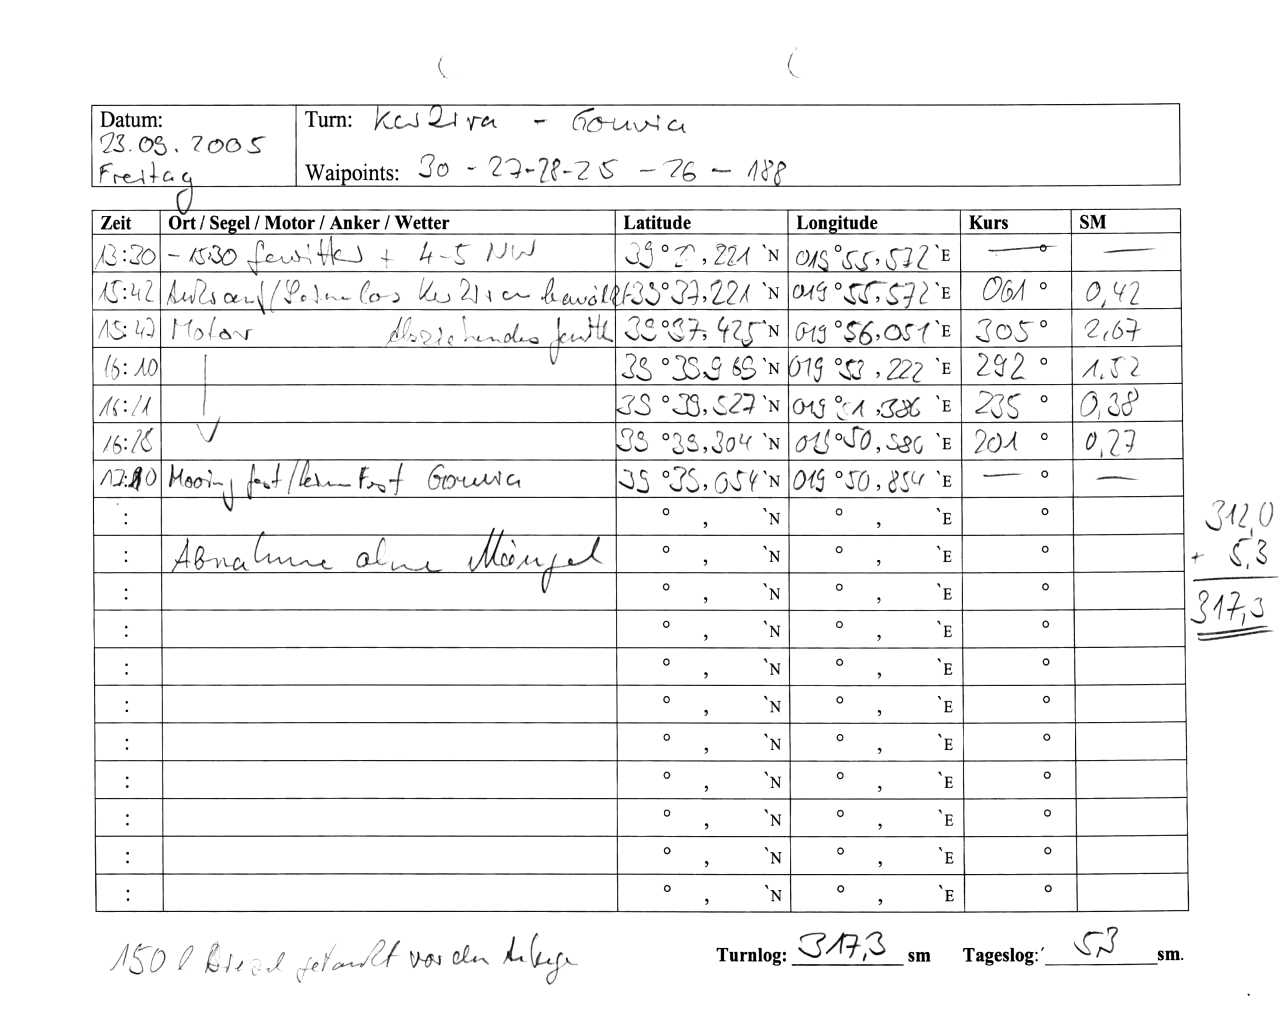 Datum: Turn: Kerkira - Gouvia
23.09.2005
Freitag Waipoints: 30 - 27-28-25 - 26 - 188
Zeit Ort / Segel / Motor / Anker / Wetter Latitude Longitude Kurs SM
13:30 - 15:30 Gewitter + 4-5 NW 39° , 221 `N 019°55,572 `E — ° —
15:42 Anker auf/Leinen los Kerkiran bewölkt 39°37,221 `N 019°55,572 `E 061 ° 0,42
15:47 Motor Abziehendes Gewitt 39°37,425 `N 019°56,051 `E 305 ° 2,67
16:10 39°38,969 `N 019°53,222 `E 292 ° 1,52
16:21 39°39,527 `N 019°51,386 `E 235 ° 0,38
16:28 39°39,304 `N 019°50,986 `E 201 ° 0,27
17:10 Mooring fest/Leinen fest Gouvia 39°39,054 `N 019°50,854 `E — ° —
: ° , `N ° , `E °
312,0
: Abnahme ohne Mängel ° , `N ° , `E °
+ 5,3
: ° , `N ° , `E °
317,3
: ° , `N ° , `E °
: ° , `N ° , `E °
: ° , `N ° , `E °
: ° , `N ° , `E °
: ° , `N ° , `E °
: ° , `N ° , `E °
: ° , `N ° , `E °
: ° , `N ° , `E °
150 l Diesel getankt vor dem Turnlog: 317,3 sm Tageslog: 5,3 sm.